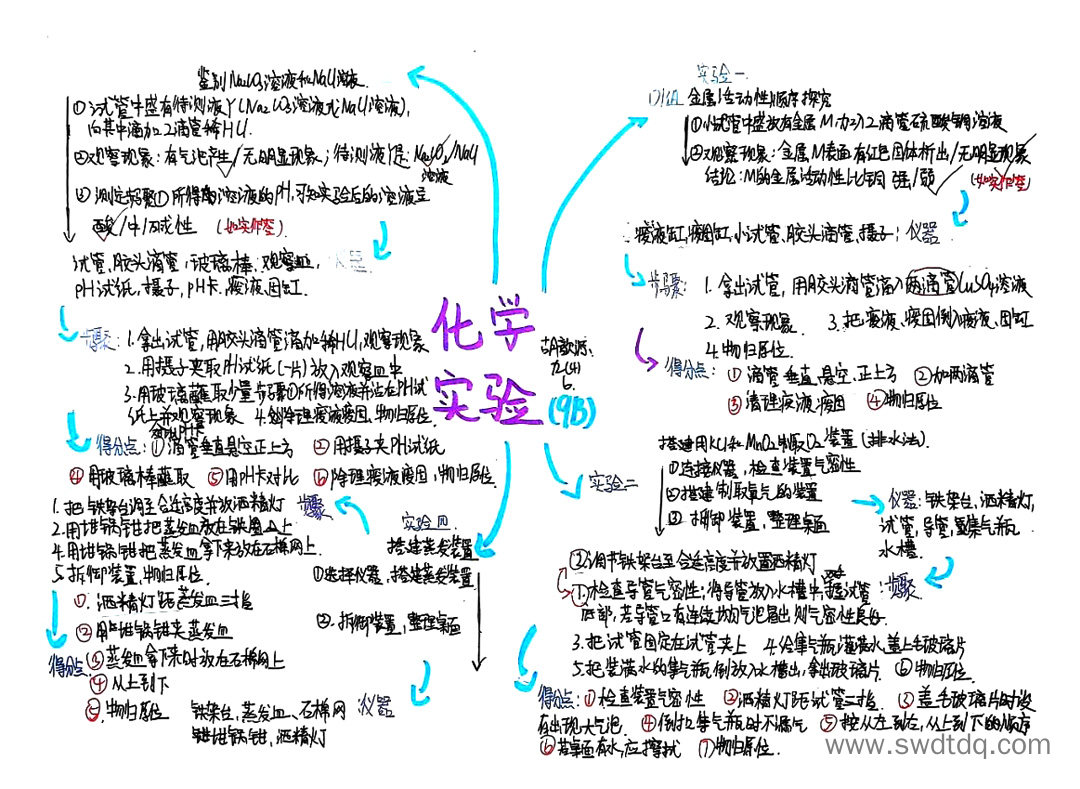 鉴别Na₂CO₃溶液和NaCl溶液
①试管中盛有待测液Y(Na₂CO₃溶液或NaCl溶液),
向其中滴加2滴管稀HCl.
②观察现象:有气泡产生/无明显现象;待测液Y是:Na₂CO₃/NaCl
溶液
②测定步骤①所得溶液的pH,可知实验后的溶液呈
酸/中/碱性 (如实作答)
试管、胶头滴管、玻璃棒、观察皿、仪器
pH试纸、镊子、pH卡、废液、固缸.
步骤:1.拿出试管,用胶头滴管滴加稀HCl,观察现象
2.用镊子夹取pH试纸(一片)放入观察皿中
3.用玻璃蘸取少量步骤①所得溶液并沾在pH试
纸上并观察现象 4.
pH卡
得分点:①滴管垂直悬空正上方 ②用镊子夹pH试纸
④用玻璃棒蘸取 ⑤用pH卡对比 ⑥除理废液废固,物归原位.
1.把铁架台调至合适高度并放酒精灯 步骤
2.用坩埚钳把蒸发皿放在铁圈上
4.用坩埚钳把蒸发皿拿下来放在石棉网上.
5.拆卸装置,物归原位.
①.酒精灯距蒸发皿三指
②用坩埚钳夹蒸发皿
得分点:③蒸发皿拿下来时放在石棉网上
④从上到下
⑤.物归原位
铁架台、蒸发皿、石棉网 仪器
坩埚钳,酒精灯
实验四
搭建蒸发装置
①选择仪器,搭建蒸发装置
②.拆卸装置,整理桌面
化学
实验
(9B)
实验一
金属活动性顺序探究
①小试管中盛放有金属M,加入2滴管硫酸铜溶液
②观察现象:金属M表面有红色固体析出/无明显现象
结论:M的金属活动性比铜 强/弱 (如实作答)
废液缸,废固缸,小试管,胶头滴管,镊子;仪器
步骤:1.拿出试管,用胶头滴管滴入两滴管CuSO₄溶液
2.观察现象. 3.把废液、废固倒入废液、固缸
4.物归原位.
得分点:①滴管垂直悬空,正上方 ②加两滴管
③清理废液,废固 ④物归原位
实验二
搭建用KCl和MnO₂制取O₂装置(排水法).
①连接仪器,检查装置气密性
②搭建制取氧气的装置
③拆卸装置,整理桌面
仪器:铁架台,酒精灯,
试管,导管,集气瓶
水槽.
②调节铁架台至合适高度并放置酒精灯
①.检查导管气密性:将导管放入水槽中,握试管 :步骤
底部,若导管口有连续均匀气泡冒出则气密性良好
3.把试管固定在试管夹上 4.给集气瓶灌满水盖上毛玻璃片
5.把装满水的集气瓶倒放入水槽出,拿出玻璃片.⑥物归原位.
得分点:①检查装置气密性 ②酒精灯距试管二指 ③盖毛玻璃片时没
有出现大气泡 ④倒扣集气瓶时不漏气 ⑤按从左到右,从上到下的顺序
⑥若桌面有水,应擦拭 ⑦物归原位.
www.swdtdq.com